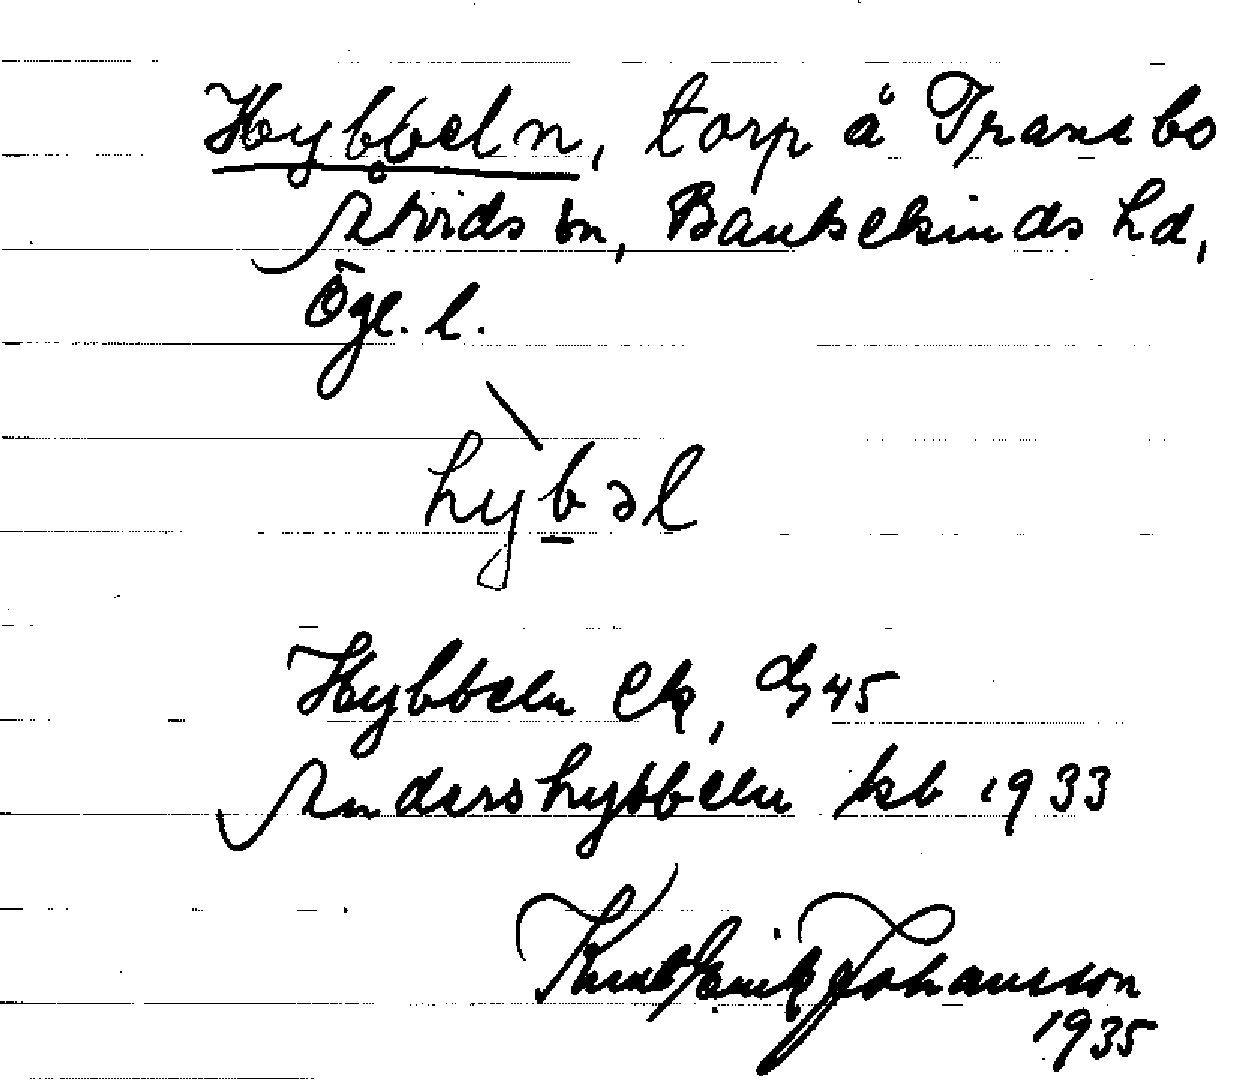 Hybbeln, torp å Tranebo
Åtvids sn, Bankekinds hd,
Ögl. l.
hybəl
Hybbeln Ek, G 45
Andershybbeln kb 1933
Knut Erik Johansson
1935